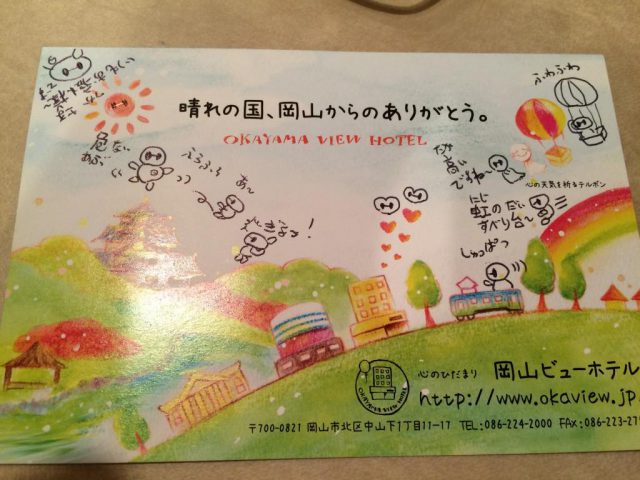 晴れの国、岡山からのありがとう。
OKAYAMA VIEW HOTEL
ふわふわ
危ない
あぶ
ふらふら
あ〜
たか
高い
ですね〜
心の天気を祈るテルボン
にじ
虹のだい
すべり台〜
しゅっぱつ
OKAYAMA VIEW HOTEL
心のひだまり 岡山ビューホテル
http://www.okaview.jp
〒700-0821 岡山市北区中山下1丁目11-17 TEL:086-224-2000 FAX:086-223-2